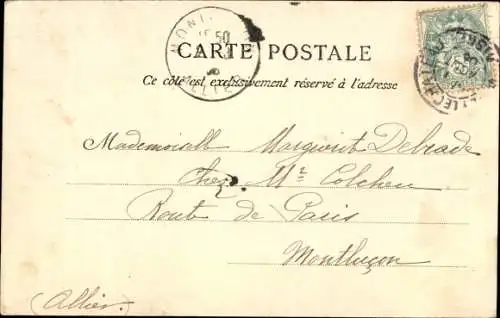 CARTE POSTALE
Ce côté est exclusivement réservé à l'adresse
Mademoisalle Marguerit Debrade
Chez Mr Colcheu
Route de Paris
Montluçon
(Allier)